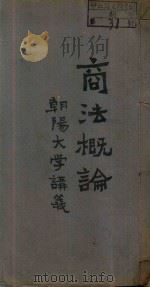 研狗
商法概論
朝陽大学講義